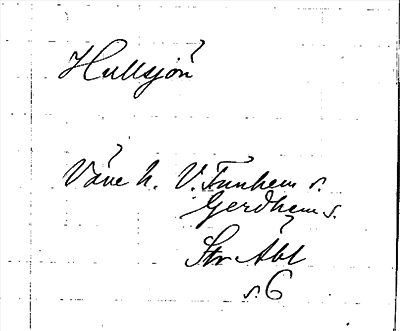 Hullsjön
Väne h. V. Tunhem s.
Gerdhem s.
Str Äbl
s. 6